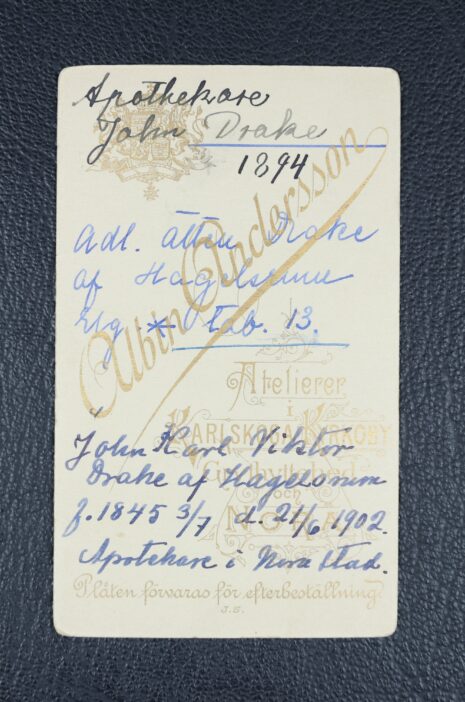 Apothekare
John Drake
1894
Albin Andersson
Adl. ätten Drake
af Hagelsrum
* Tab. 13.
Atelierer
i
KARLSKOGA KYRKOBY
Grythyttehed
och
NORA
John Karl Viktor
Drake af Hagelsrum
f. 1845 3/7 d. 21/6 1902.
Apotekare i Nora stad.
Plåten förvaras för efterbeställning.
J.S.